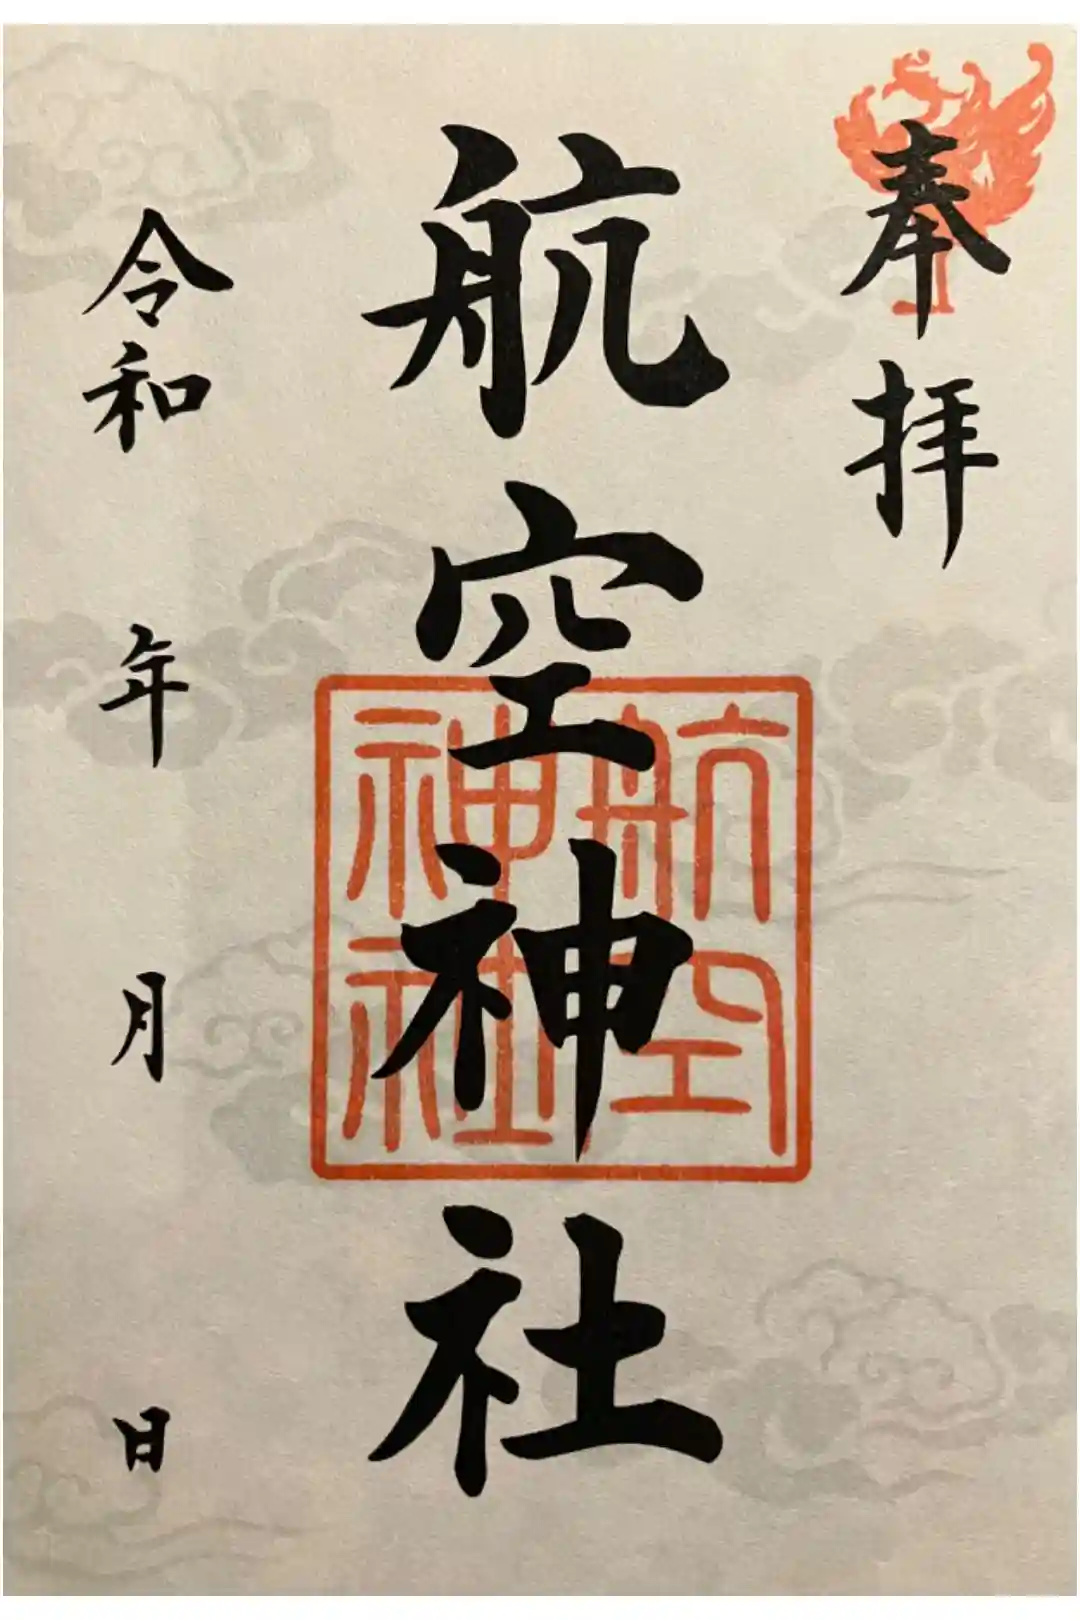 奉拝
航空神社
航空神社
令和 年 月 日